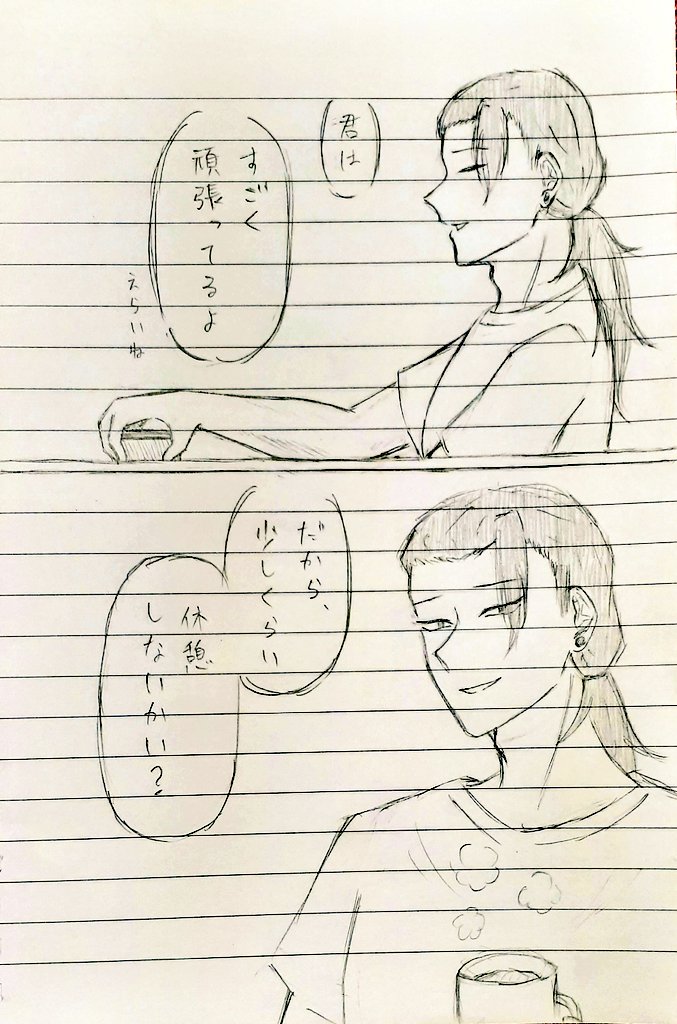 君は
すごく
頑張ってるよ
えらいね
だから、
少しくらい
休憩
しないかい?